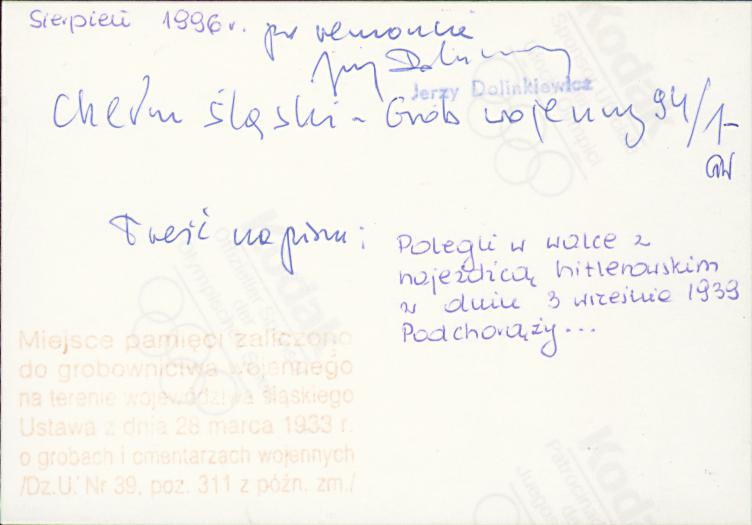 Sierpień 1996 r. po remoncie
Jerzy Dolinkiewicz
Chełm śląski - Grób wojenny 94/1-
GW
Treść napisu:
Polegli w walce z
najeźdźcą hitlerowskim
w dniu 3 września 1939
Podchorąży...
Miejsce pamięci zaliczono
do grobownictwa wojennego
na terenie województwa śląskiego
Ustawa z dnia 28 marca 1933 r.
o grobach i cmentarzach wojennych
/Dz.U. Nr 39, poz. 311 z późn. zm./
Kodak
Kodak
Kodak